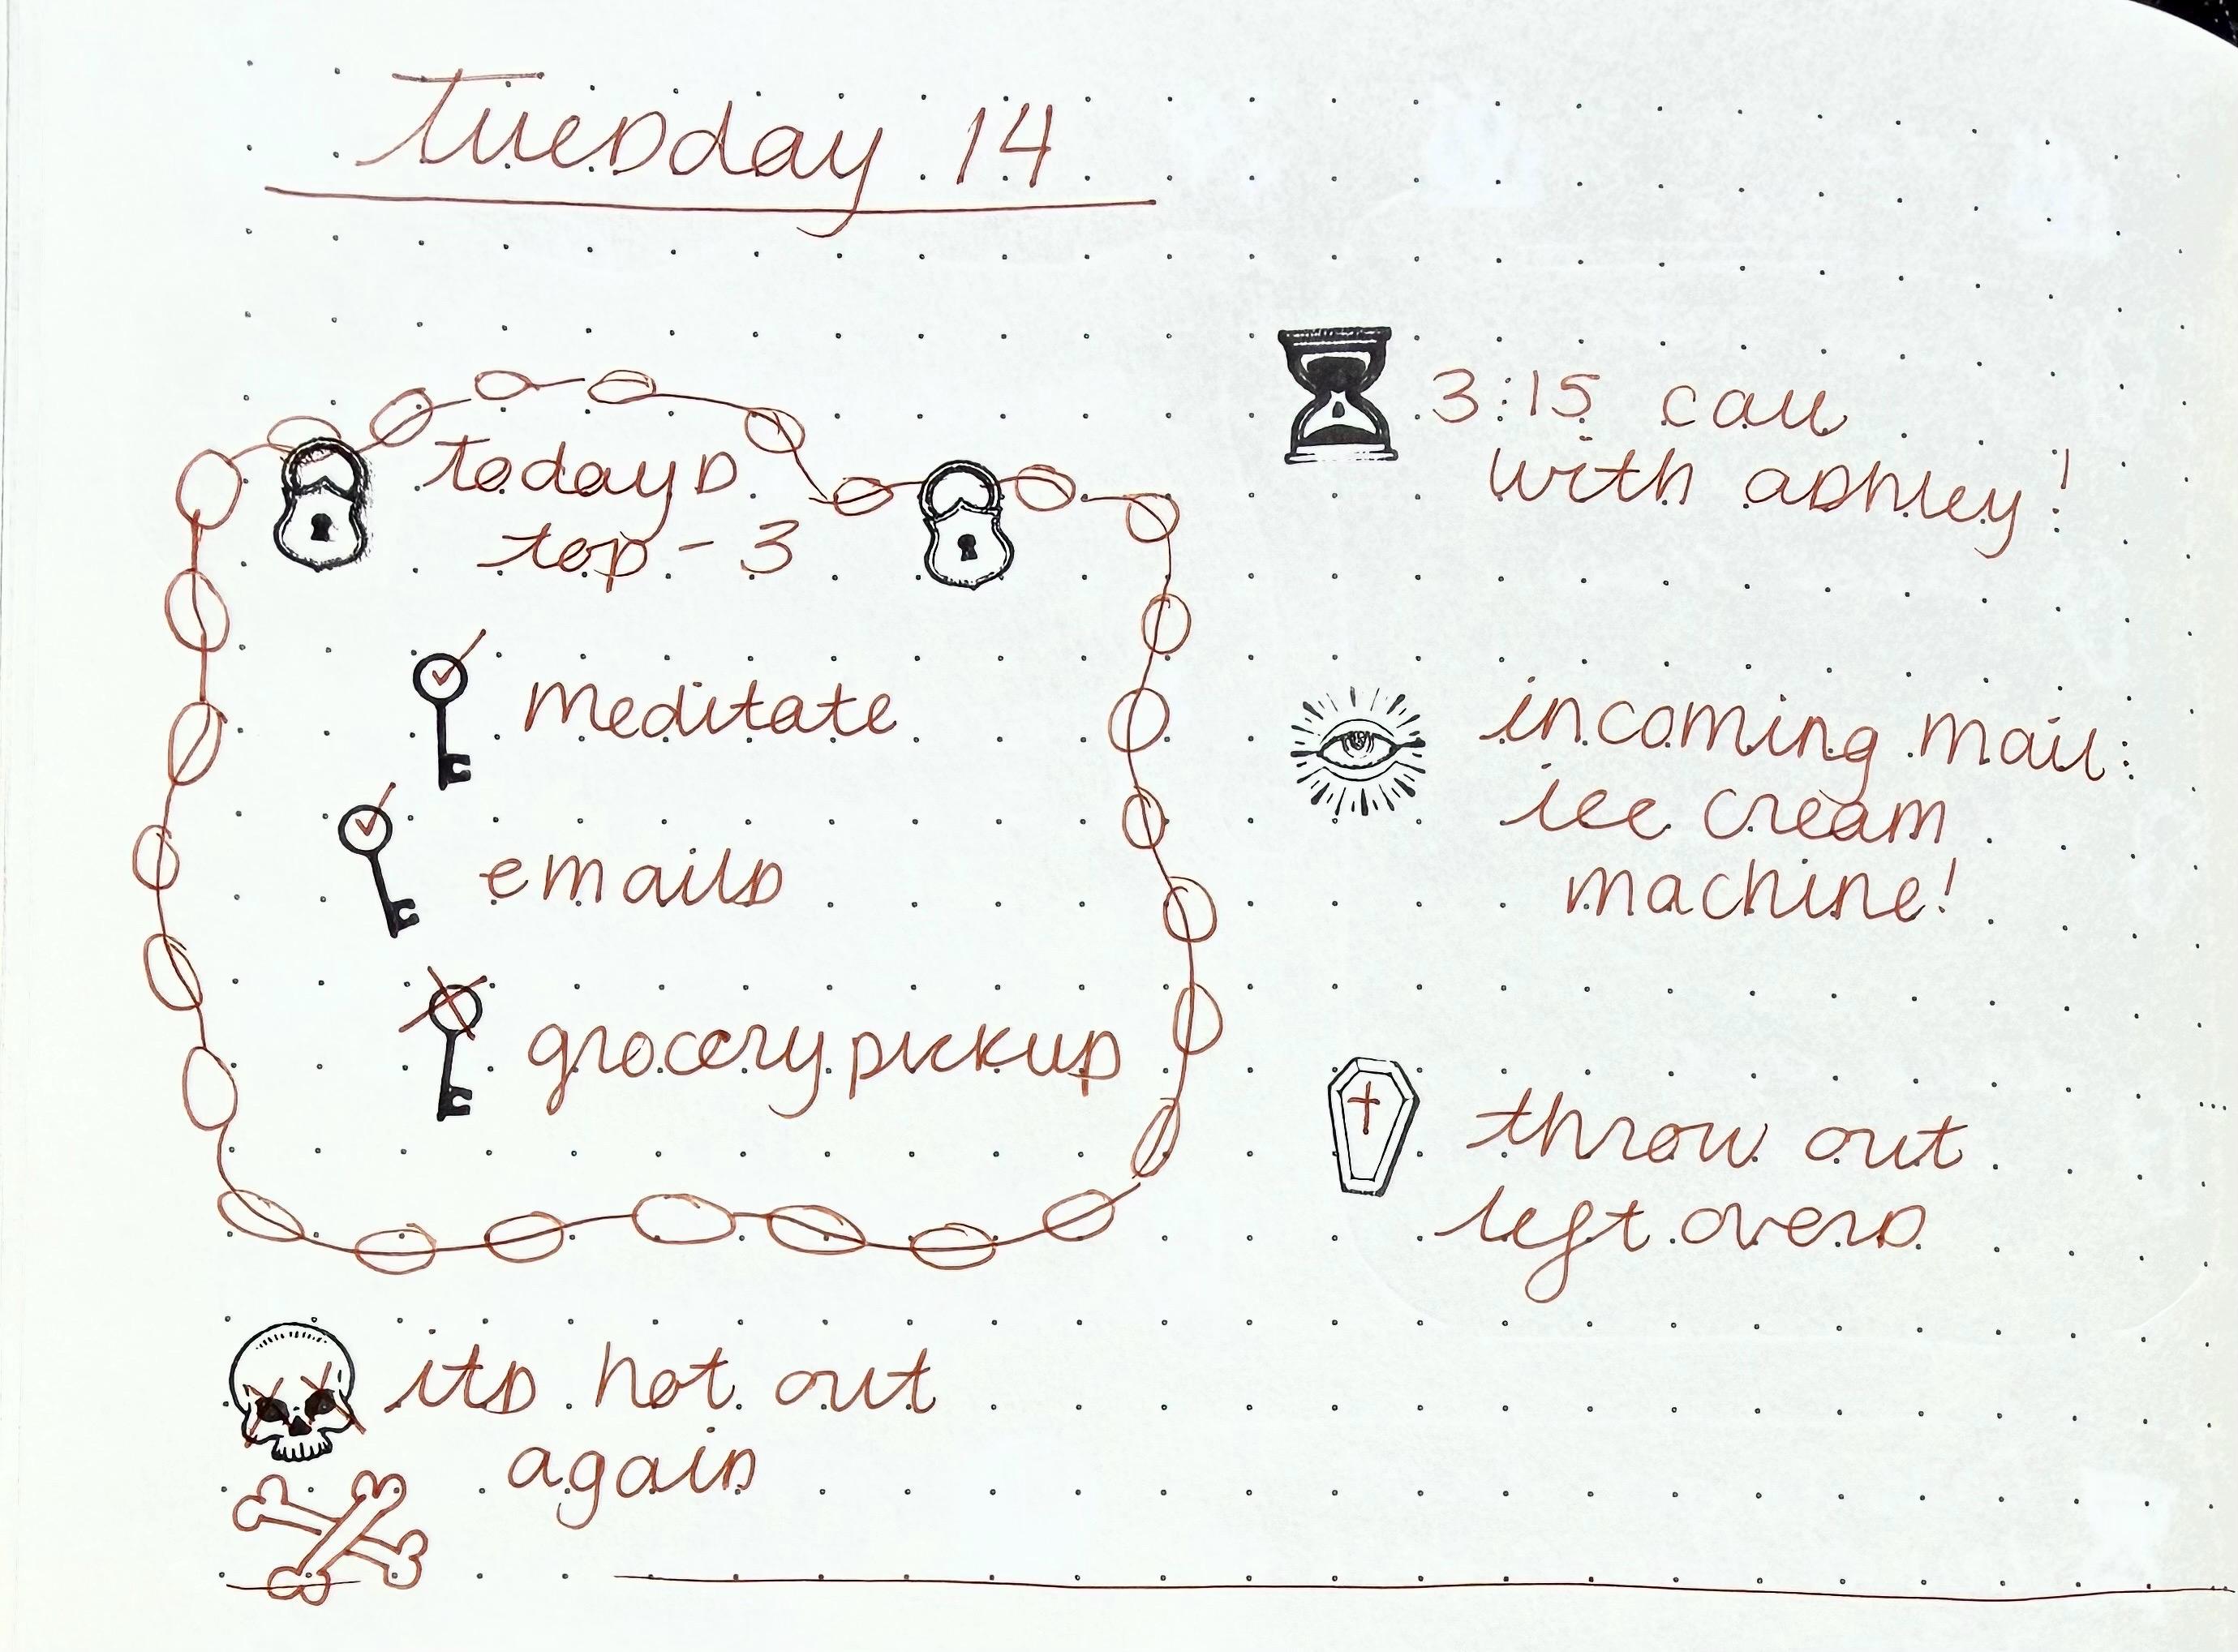 Tuesday 14
todays
top - 3
meditate
emails
grocery pickup
its hot out
again
3:15 call
with ashley!
incoming mail:
ice cream
machine!
throw out
left overs